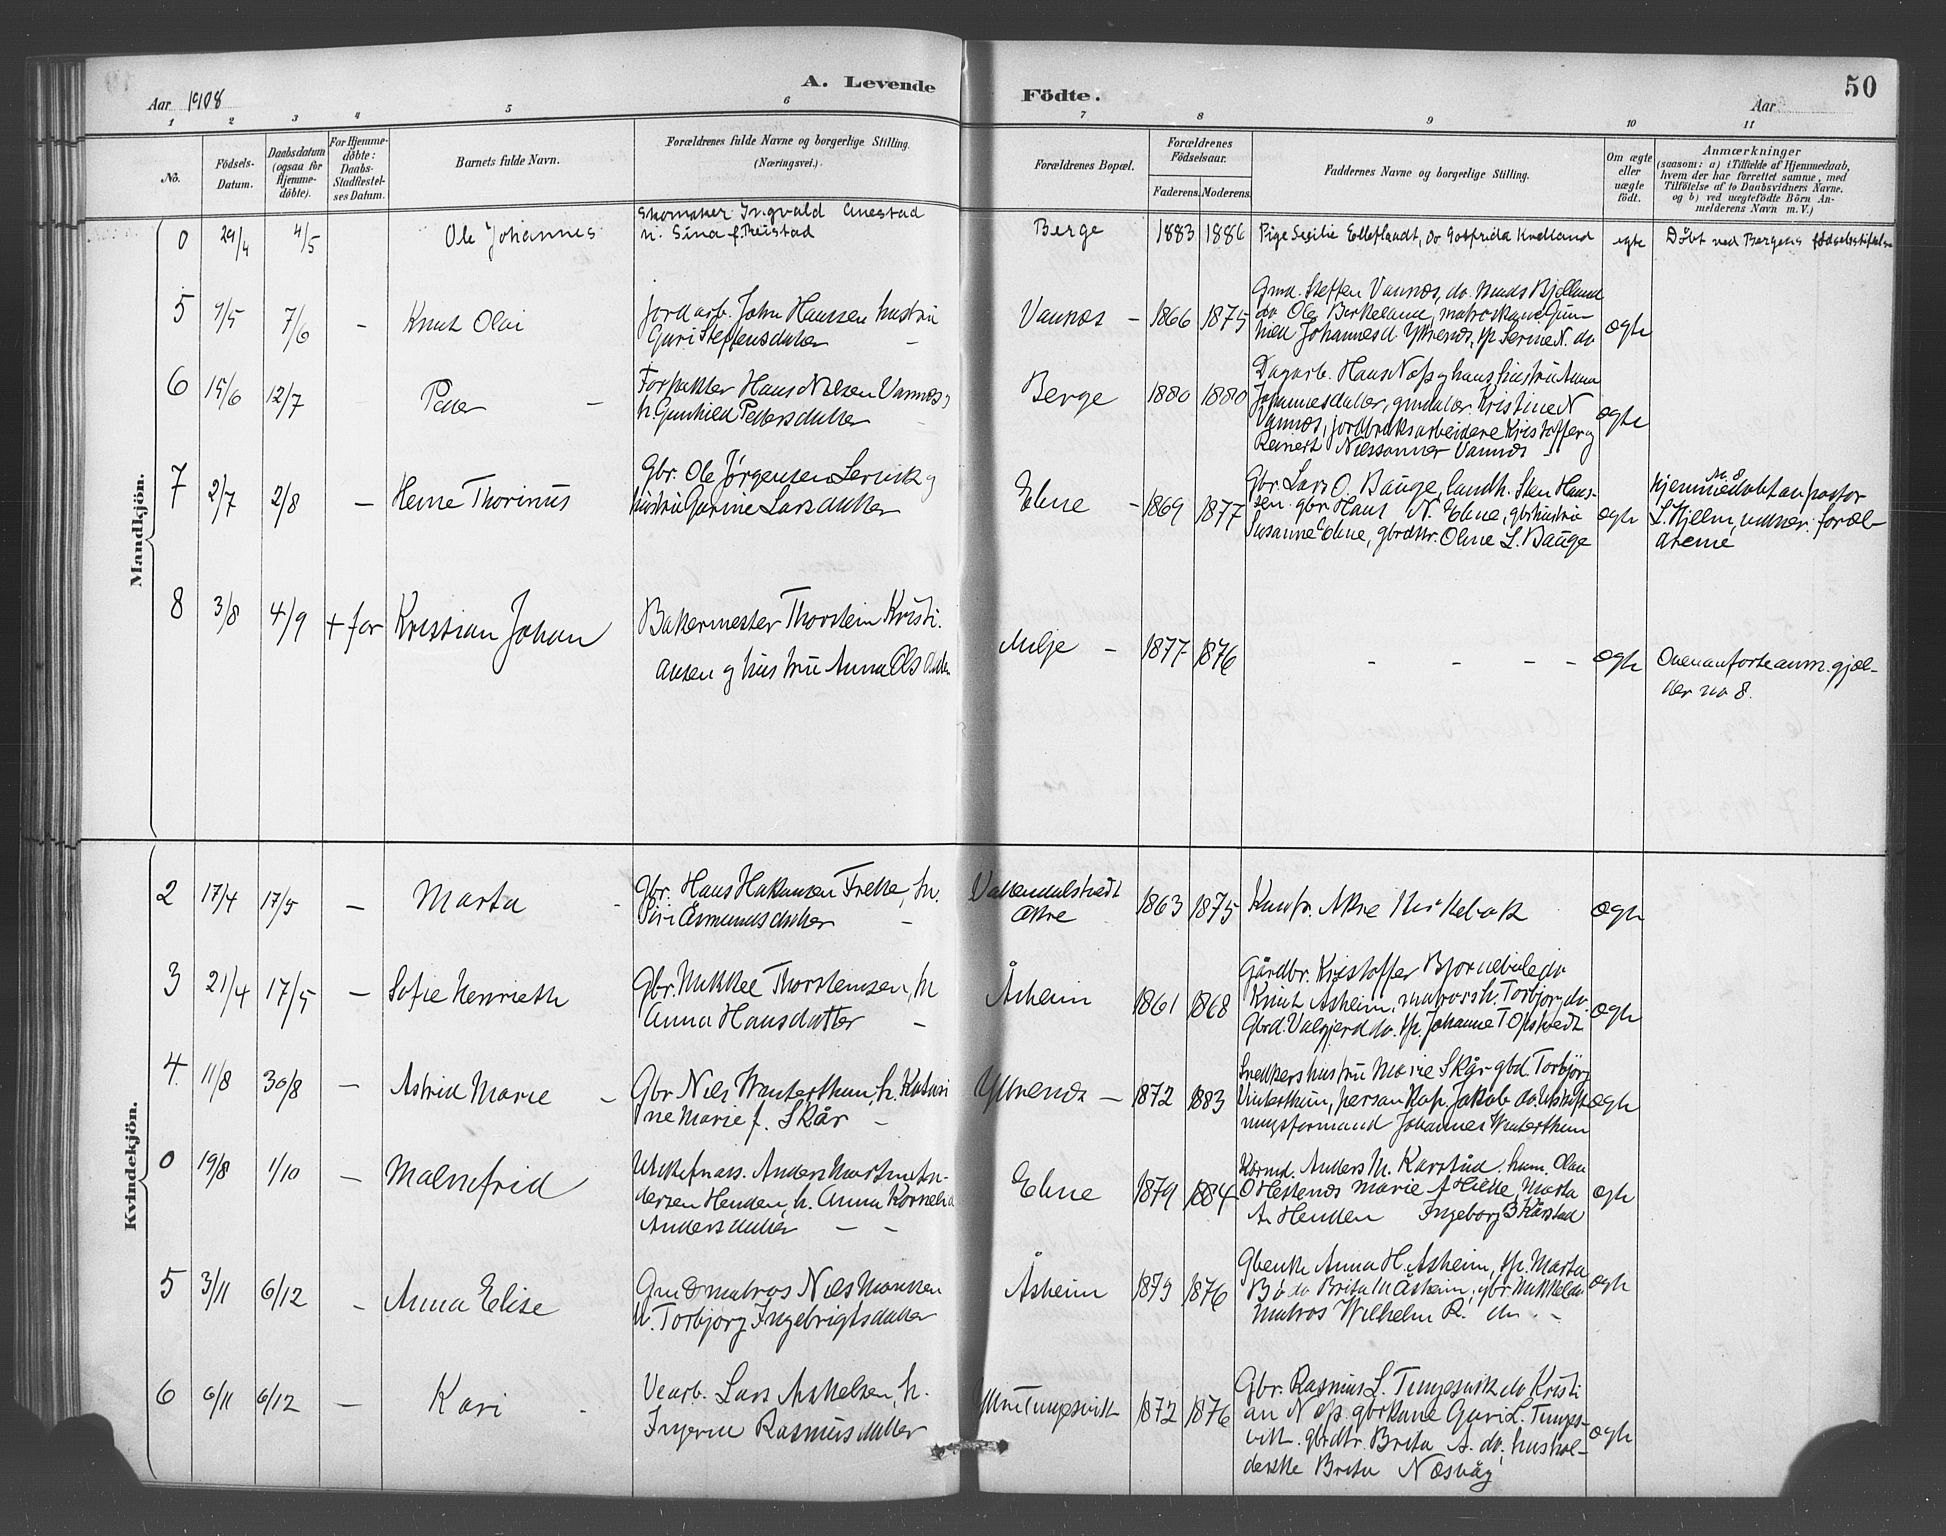 A. Levende Födte.
50
Aar 1908
Aar
1 2 3 4 5 6 7 8 9 10 11
No.
Födsels-Datum.
Daabsdatum (ogsaa for Hjemme-döbte).
For Hjemme-döbte: Daabs-Stadfæstel-ses Datum.
Barnets fulde Navn.
Forældrenes fulde Navne og borgerlige Stilling.
(Næringsvei.)
Forældrenes Bopæl.
Forældrenes Födselsaar.
Faderens. Moderens.
Faddernes Navne og borgerlige Stilling.
Om ægte eller uægte födt.
Anmærkninger
(saasom: a) i Tilfælde af Hjemmedaab,
hvem der har forrettet samme, med
Tilföielse af to Daabsvidners Navne,
og b) ved uægtefödte Börn An-
melderens Navn m. V.)
Mandkjön.
0 29/4 4/5 Ole Johannes
Skomaker Ingvald
h. Sina f.
Berge 1883 1886
Pige
egte
Døbt ved Bergens
5 4/5 7/6 – Knut Olai
Jordarb. John Hanssen hustru
Guri Steffensdatter –
Vannes – 1866 1875
Gmd. Steffen Vannes, do. Mads Bjelland
do Ole Birkeland, matroskone Gun-
hild Johannesd. Ytrenes, sp. Serine N. do
ægte
6 15/6 12/7 Peder –
Forpakter Hans Nilsen Vannes,
h. Gunhild Pedersdatter –
Berge 1880 1880
Dagarb. Hans Næs og hans hustru Anna
Johannesdatter, gmdatter Kristine N
Vannes, jordbruksarbeidere Kristoffer og
Reinert Nilssønner Vannes –
ægte
7 2/7 2/8 – Herne Thorinus
Gbr. Ole Jørgensen Lervik og
hustru Gurine Larsdatter
Elvne – 1869 1877
Gbr. Lars O. Bauge, landh. Sten Hans-
sen. gbr Hans N. Elvne, gbrhustru
Susanne Elvne, gbrdtr. Oline L. Bauge
ægte
No. 8
Hjemmedøbt av pastor
L. Hjelm, vidner: foræl-
drene
8 3/8 4/9 + før Kristian Johan
Bakermester Thorstein Kristi-
ansen og hustru Anna Olsdatter
Milje – 1877 1876
– – – –
ægte
Ovenanførte anm. gjæl-
der no 8.
Kvindekjön.
2 17/4 17/5 – Marta
Gbr. Hans Hakonsen Frette, h.
Siri Asmundsdatter –
Akre
1863 1875
Akre
ægte
3 21/4 17/5 – Sofie Henriette
Gbr. Mikkel Thorstensen, h
Anna Hansdatter –
Åsheim 1861 1868
Gårdbr. Kristoffer Bjørnebøle do
Knut Asheim, matrosh. Torbjørg do.
Gbrd. Valgjerd do. sp. Johanne T Opstvedt
ægte
4. 11/8 30/8 – Astrid Marie –
Gbr Nils Winterthun, h. Katari
ne Marie f. Skår –
Ytrenes – 1872 1883
Snedkershustru Marie Skår gbd Torbjörg
Vinterthun, Jakob do.
Johannes Winterthun
ægte
0 19/8 1/10 – Malmfrid
Anders Martin An-
dersen Henden, h. Anna Kornelia
Andersdatter – –
Elvne 1879 1884
Anders M. Karstad
Marta
A. Henden Ingeborg B Karstad
ægte
5 3/11 6/12 – Anna Elise
Gmd &amp; matros Nils Monsen
h. Torbjørg Ingebrigtsdatter
Åsheim 1879 1876
Gbenke Anna H. Asheim, sp. Marta
Bö do Brita M Åsheim, gbr Mikkel do.
Matros Wilhelm R. do –
ægte
6 6/11 6/12 – Kari
Vearb. Lars Askelsen, h.
Ingerid Rasmusdatter
Ytre Tungesvik 1872 1876
Gbr. Rasmus L. Tungesvik do Kristi
an Næs. gbrkone Guri L. Tunges-
vik. gbrdtr. Brita A. do, hushol-
derske Brita Næsvåg
ægte